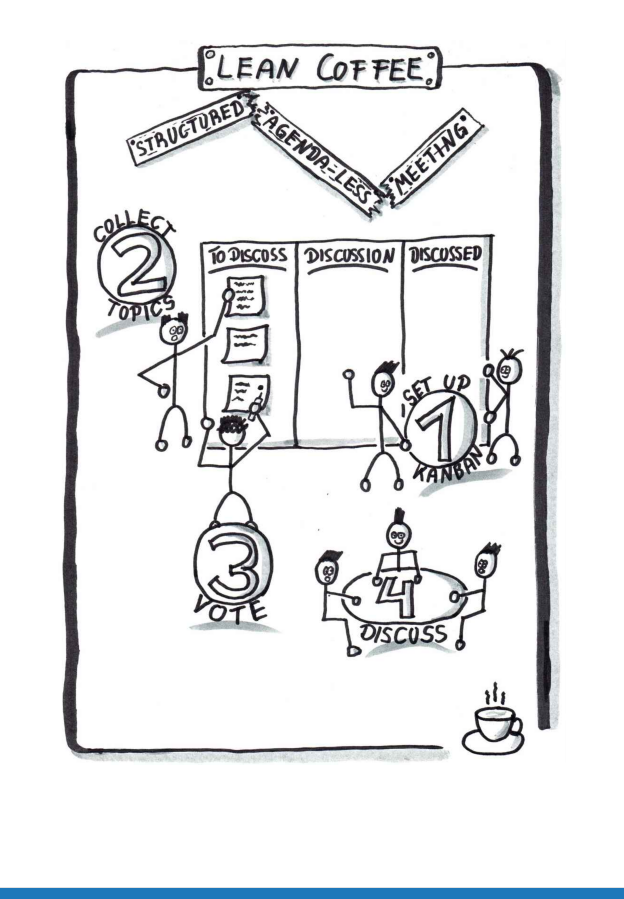 LEAN COFFEE
STRUCTURED
AGENDA-LESS
MEETING
COLLECT
2
TOPICS
TO DISCOSS
DISCUSSION
DISCUSSED
SET UP
1
KANBAN
3
VOTE
4
DISCUSS